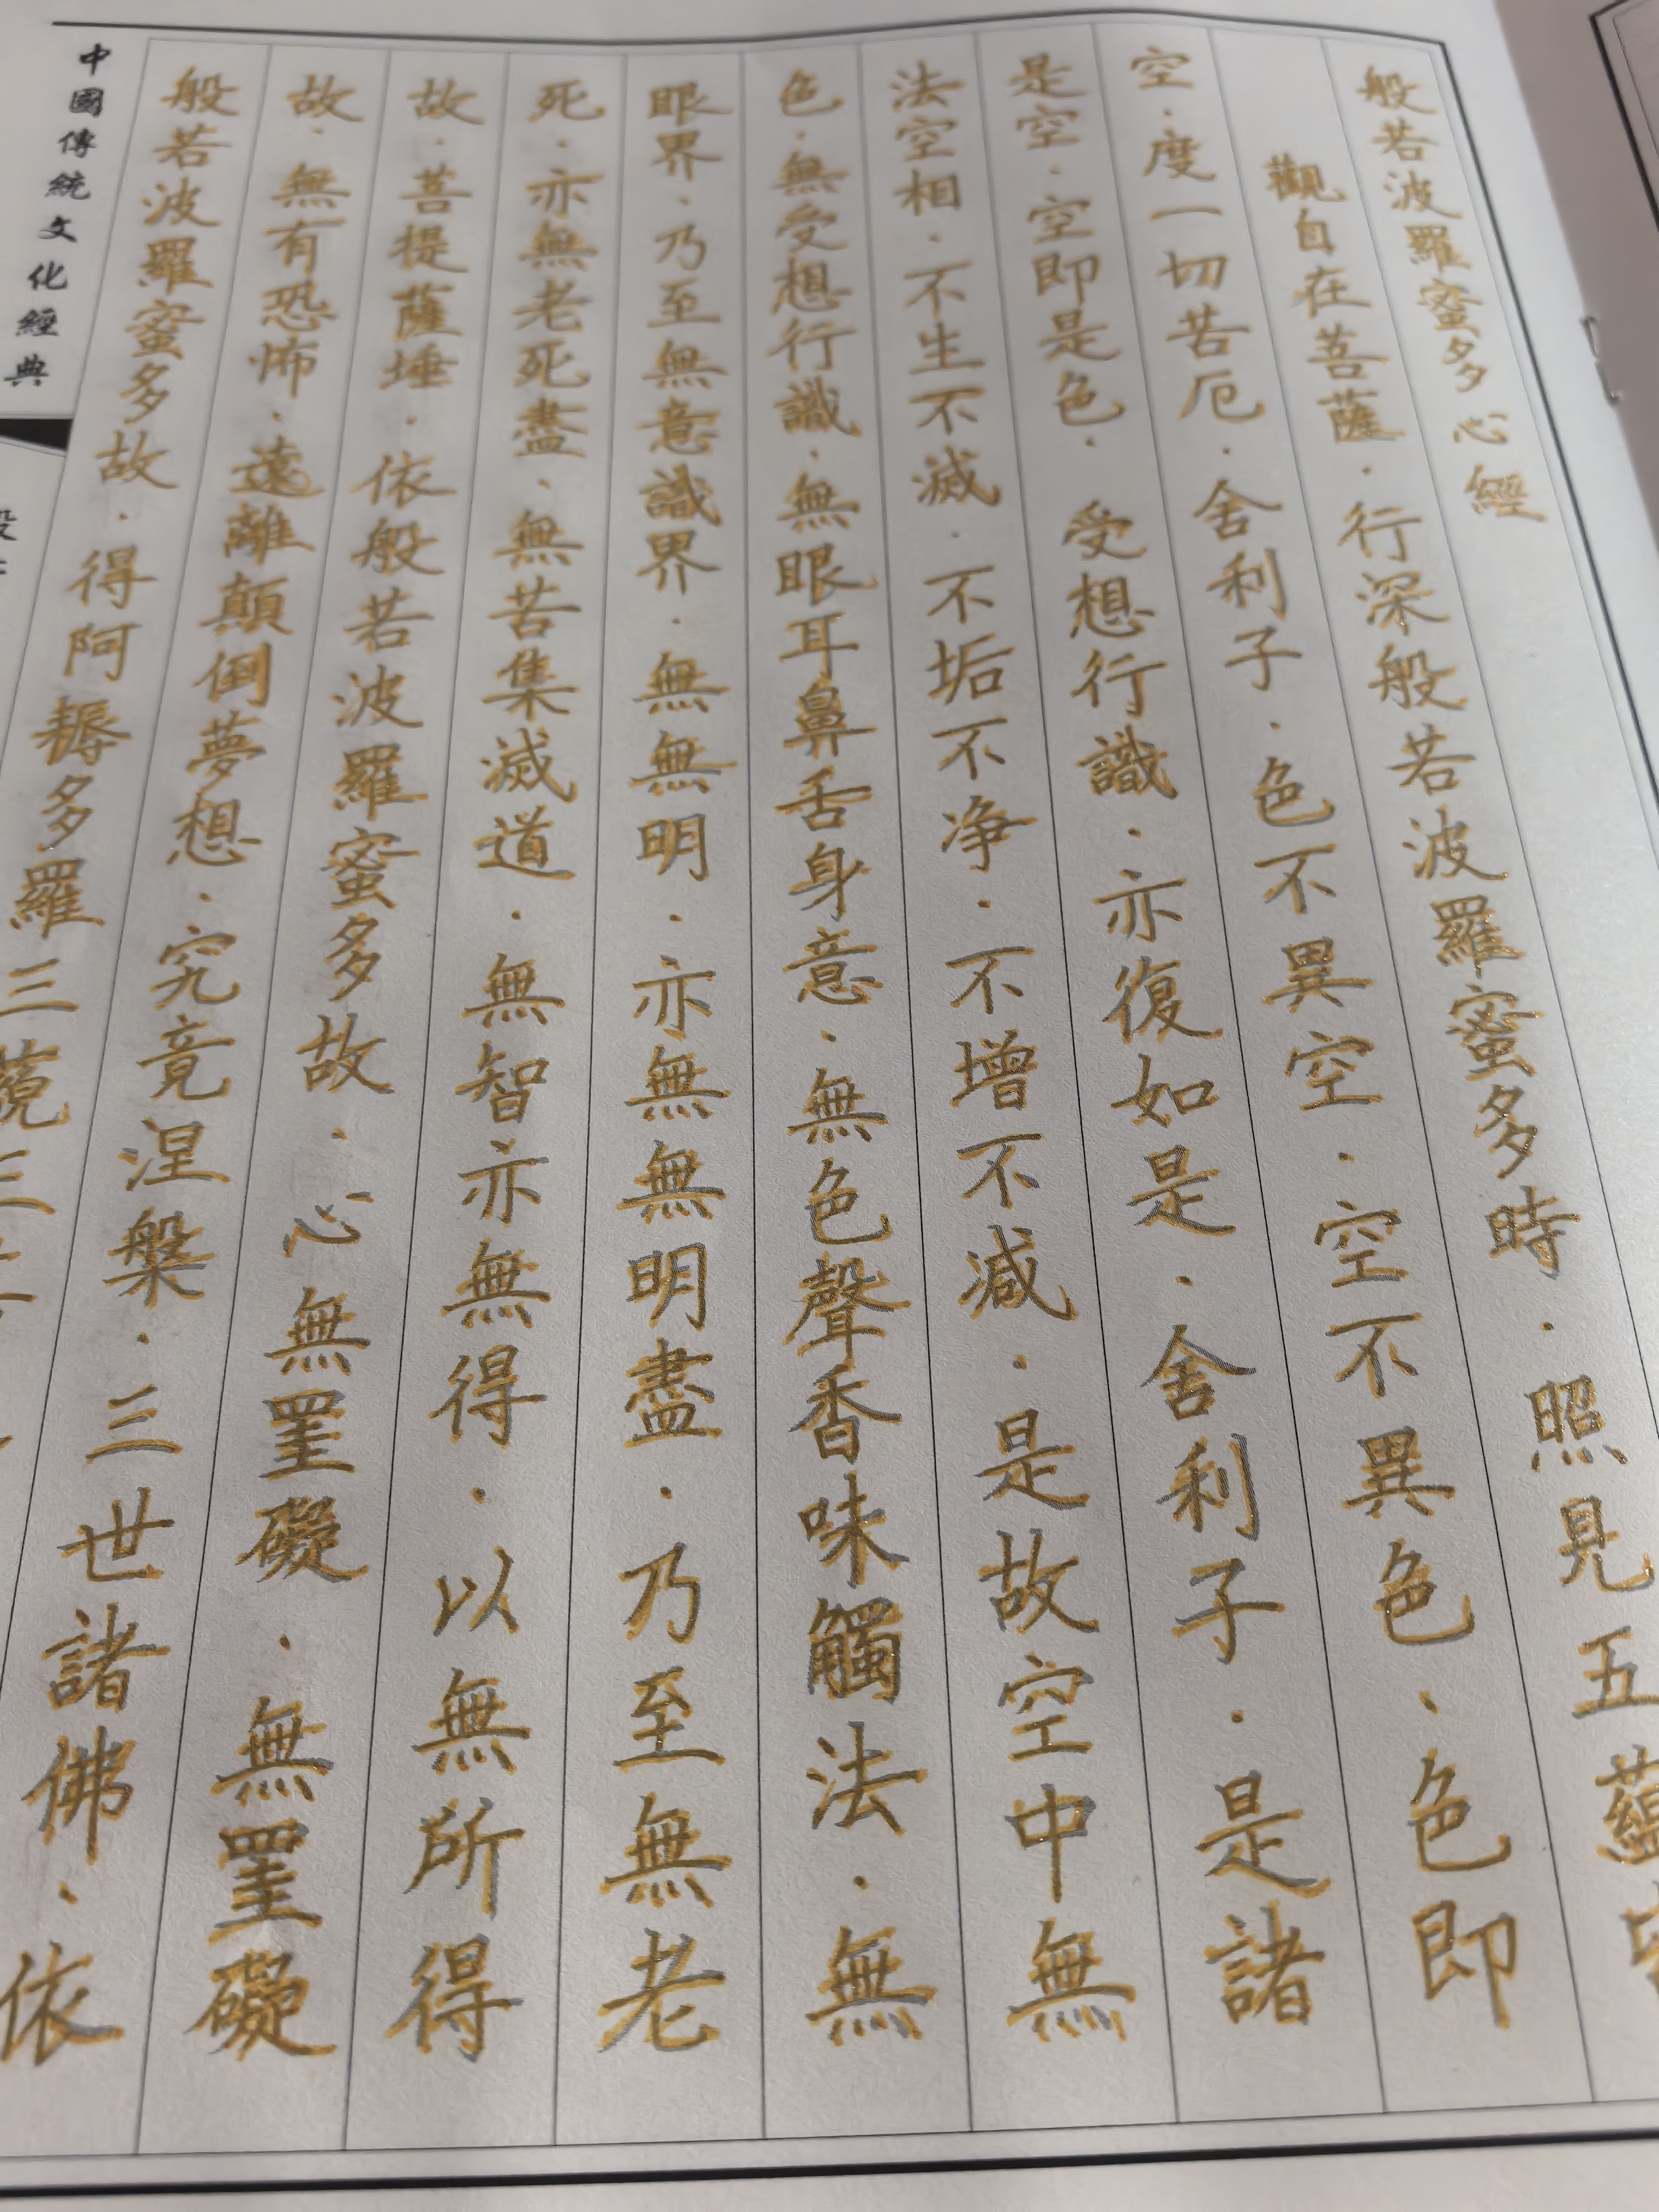 般若波羅蜜多心經
觀自在菩薩·行深般若波羅蜜多時·照見五蘊皆
空·度一切苦厄·舍利子·色不異空·空不異色·色即
是空·空即是色·受想行識·亦復如是·舍利子·是諸
法空相·不生不滅·不垢不净·不增不減·是故空中無
色·無受想行識·無眼耳鼻舌身意·無色聲香味觸法·無
眼界·乃至無意識界·無無明·亦無無明盡·乃至無老
死·亦無老死盡·無苦集滅道·無智亦無得·以無所得
故·菩提薩埵·依般若波羅蜜多故·心無罣礙·無罣礙
故·無有恐怖·遠離顛倒夢想·究竟涅槃·三世諸佛·依
般若波羅蜜多故·得阿耨多羅三藐三
中國傳統文化經典